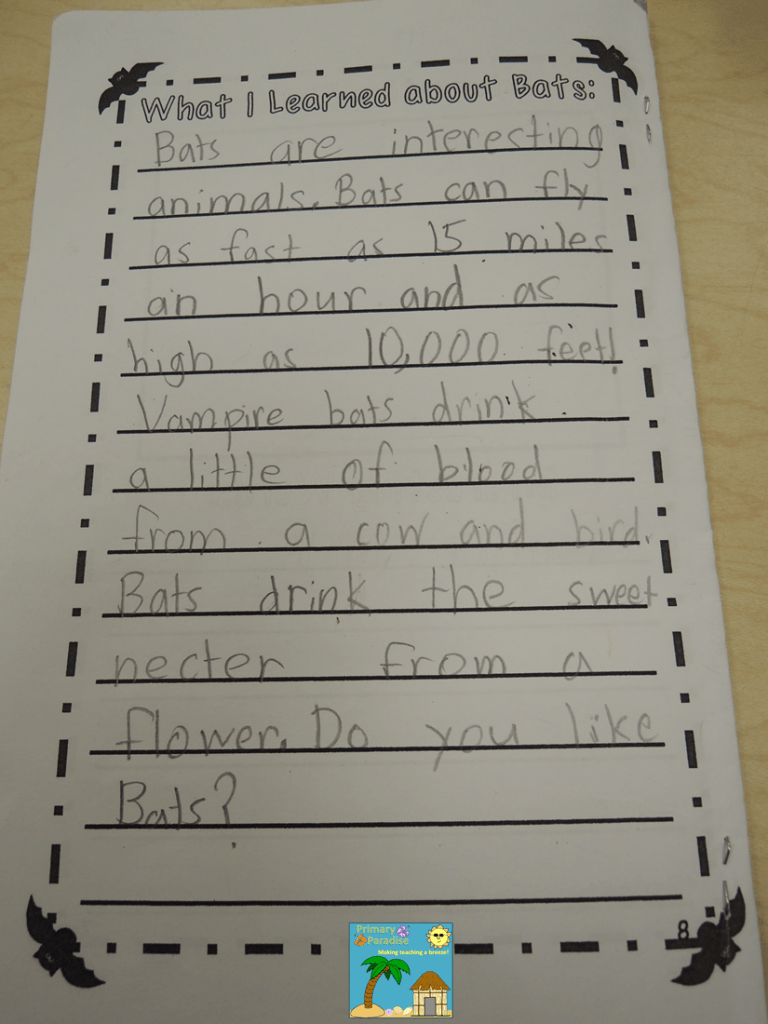 What I Learned about Bats:
Bats are interesting
animals. Bats can fly
as fast as 15 miles
an hour and as
high as 10,000 feet!
Vampire bats drink
a little of blood
from a cow and bird.
Bats drink the sweet
necter from a
flower. Do you like
Bats?
8
Primary
Paradise
Making teaching a breeze!